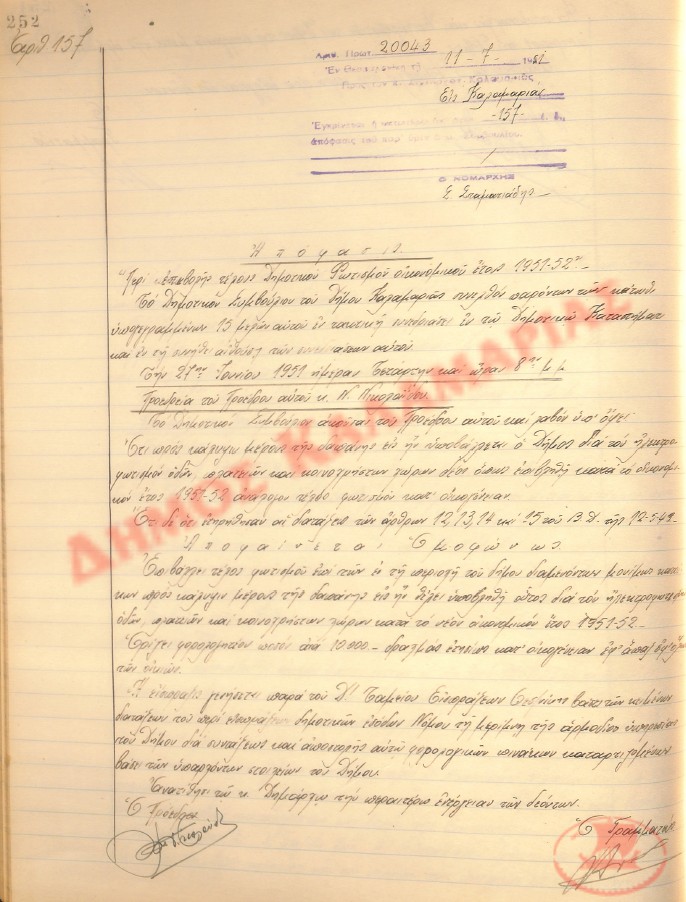 252
Αριθ. 157
Αριθ. Πρωτ. 20043
Ἐν Θεσσαλονίκῃ τῇ 11-7-1951
Εἰς Καλαμαριάς
Ἐγκρίνεται ἡ -157-
Ὁ ΝΟΜΑΡΧΗΣ
Σ. Σταματιάδης
Ἀπόφασις
Περὶ ἐπιβολῆς τέλους Δημοτικοῦ Φωτισμοῦ οἰκονομικοῦ ἔτους 1951-52
Τὸ Δημοτικὸν Συμβούλιον τοῦ Δήμου Καλαμαριᾶς συνελθὸν παρόντων τῶν κάτωθι
ὑπογεγραμμένων 15 μελῶν αὐτοῦ ἐν τακτικῇ συνεδριάσει ἐν τῷ Δημοτικῷ Καταστήματι
καὶ ἐν τῇ συνήθει αἰθούσῃ τῶν συνεδριάσεων αὐτοῦ
Τὴν 27ην Ἰουνίου 1951 ἡμέραν Τετάρτην καὶ ὥραν 8ην μ μ
Προεδρεία τοῦ Προέδρου αὐτοῦ κ. Ν. Νικολαΐδου
Τὸ Δημοτικὸν Συμβούλιον τοῦ Προέδρου αὐτοῦ καὶ λαβὸν ὑπ' ὄψει
Ὅτι πρὸς κάλυψιν μέρους τῆς δαπάνης εἰς ἣν ὑποβάλλεται ὁ Δῆμος διὰ τὸν ἠλεκτρο-
φωτισμὸν ὁδῶν, πλατειῶν καὶ κοινοχρήστων χώρων δέον ὅπως ἐπιβληθῇ κατὰ τὸ οἰκονομι-
κὸν ἔτος 1951-52 ἀνάλογον τέλος φωτισμοῦ κατ' οἰκογένειαν.
Ὅτι δὲ ἐτηρήθησαν αἱ διατάξεις τῶν ἄρθρων 12, 13, 14 καὶ 15 τοῦ Β.Δ. τῆς 12-5-49-
Ἀποφαίνεται Ὁμοφώνως
Ἐπιβάλλει τέλος φωτισμοῦ ἐπὶ τῶν ἐν τῇ περιοχῇ τοῦ δήμου διαμενόντων μονίμως κατοί-
κων πρὸς κάλυψιν μέρους τῆς δαπάνης εἰς ἣν θέλει ὑποβληθῇ οὗτος διὰ τὸν ἠλεκτροφωτισμὸν
ὁδῶν, πλατειῶν καὶ κοινοχρήστων χώρων κατὰ τὸ νέον οἰκονομικὸν ἔτος 1951-52-
Ὁρίζει φορολογητέον ποσὸν ἀπὸ 10.000- δραχμὰς ἐτησίως κατ' οἰκογένειαν
τῶν οἰκιῶν.
Ἡ εἴσπραξις γενήσεται παρὰ τοῦ Δ! Ταμείου Εἰσπράξεων Θεσ/νίκης βάσει τῶν κειμένων
διατάξεων τοῦ περὶ εἰσπράξεως δημοτικῶν ἐσόδων Νόμου τῇ μερίμνῃ τῆς ἁρμοδίου ὑπηρεσίας
τοῦ Δήμου διὰ συντάξεως καὶ ἀποστολῆς αὐτῷ φορολογικῶν πινάκων καταρτιζομένων
βάσει τῶν ὑπαρχόντων στοιχείων τοῦ Δήμου.
Ἀνατίθησι τῷ κ. Δημάρχῳ τὴν περαιτέρω ἐνέργειαν τῶν δεόντων.
Ὁ Πρόεδρος
Ὁ Γραμματεὺς
ΔΗΜΟΣ ΚΑΛΑΜΑΡΙΑΣ